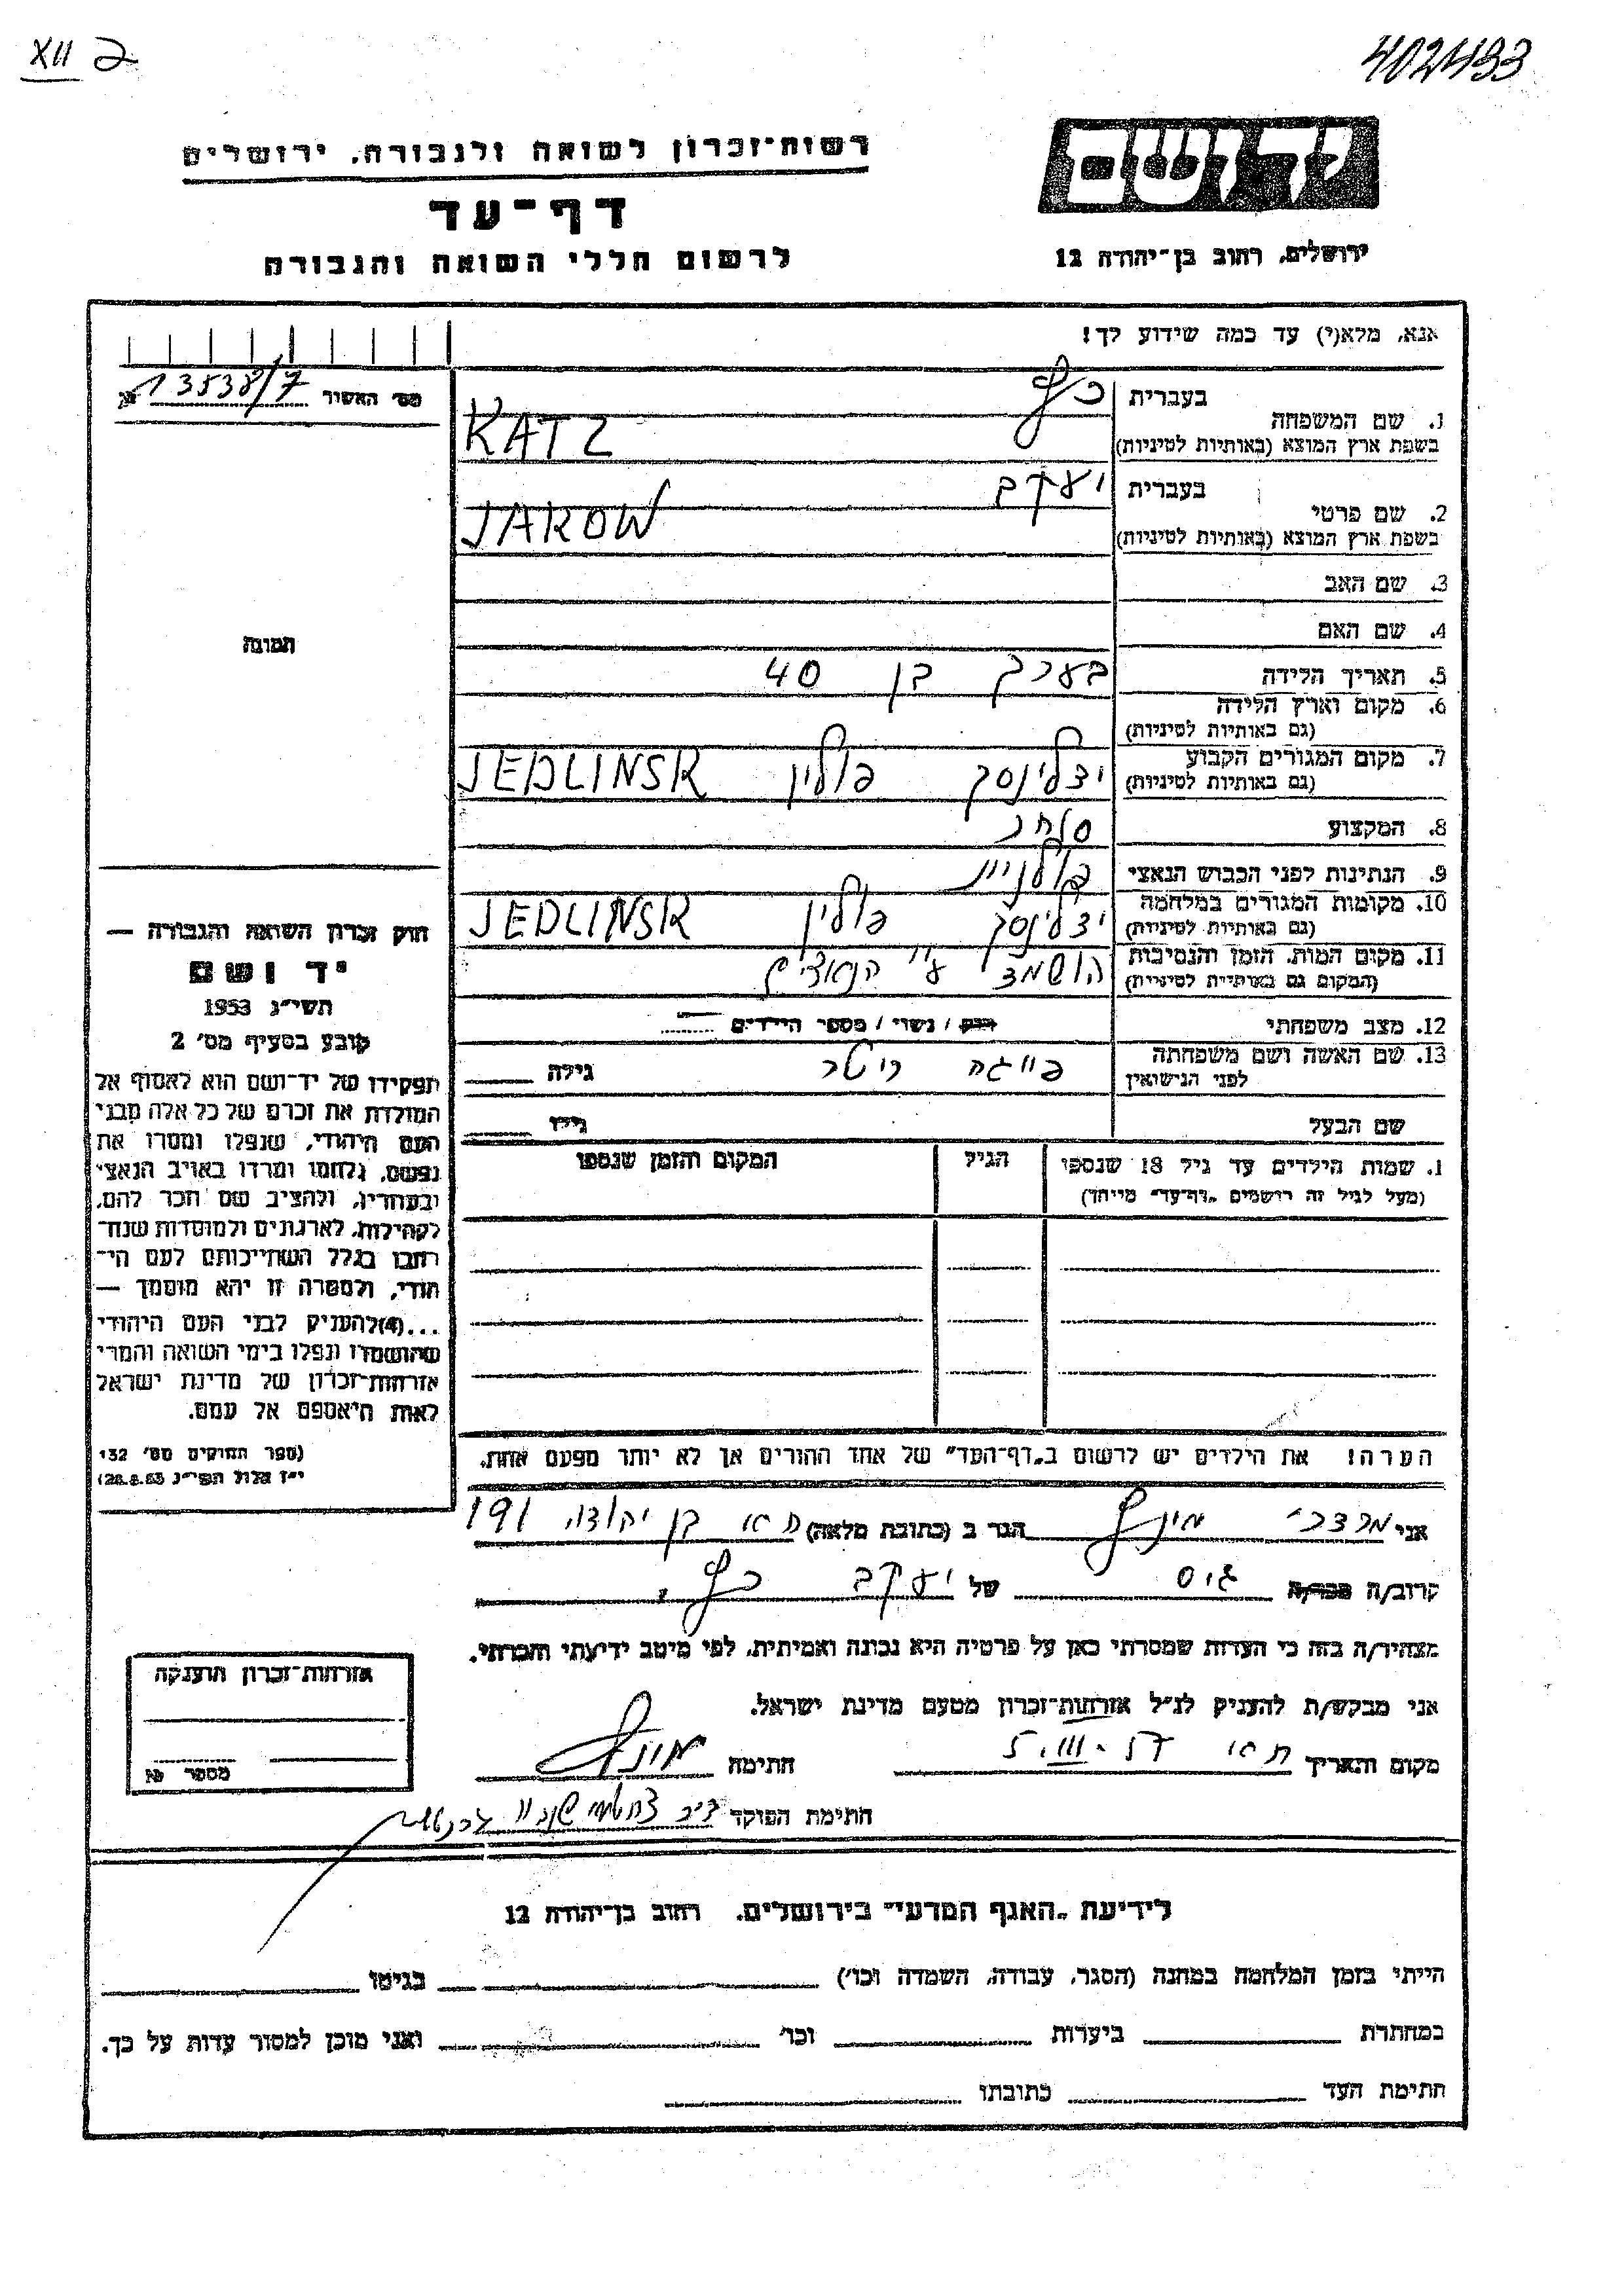 XII 2
402493
יד ושם
ירושלים, רחוב בן־יהודה 12
רשות־זכרון לשואה ולגבורה, ירושלים
דף־עד
לרשום חללי השואה והגבורה
אנא, מלא(י) עד כמה שידוע לך!
1. שם המשפחה בעברית כץ
בשפת ארץ המוצא (באותיות לטיניות) KATZ
2. שם פרטי בעברית יעקב
בשפת ארץ המוצא (באותיות לטיניות) JAKOW
3. שם האב
4. שם האם
5. תאריך הלידה בערך בן 40
6. מקום וארץ הלידה
(גם באותיות לטיניות)
7. מקום המגורים הקבוע
(גם באותיות לטיניות) ידלינסק פולין JEDLINSK
8. המקצוע סוחר
9. הנתינות לפני הכבוש הנאצי פולנית
10. מקומות המגורים במלחמה
(גם באותיות לטיניות) ידלינסק פולין JEDLINSK
11. מקום המות, הזמן והנסיבות הושמד ע"י הנאצים
(המקום גם באותיות לטיניות)
12. מצב משפחתי רווק / נשוי / מספר הילדים
13. שם האשה ושם משפחתה פייגה ריטר גילה
לפני הנישואין
שם הבעל גילו
1. שמות הילדים עד גיל 18 שנספו הגיל המקום והזמן שנספו
(מעל לגיל זה רושמים „דף־עד" מיוחד)
הערה! את הילדים יש לרשום ב„דף־העד" של אחד ההורים אך לא יותר מפעם אחת.
מס' האשיר № 13538/7
תמונה
חוק זכרון השואה והגבורה —
יד ושם
תשי"ג 1953
קובע בסעיף מס' 2
תפקידו של יד־ושם הוא לאסוף אל
המולדת את זכרם של כל אלה מבני
העם היהודי, שנפלו ומסרו את
נפשם, נלחמו ומרדו באויב הנאצי
ובעוזריו, ולהציב שם וזכר להם,
לקהילות, לארגונים ולמוסדות שנח־
רבו בגלל השתייכותם לעם הי־
הודי, ולמטרה זו יהא מוסמך —
...(4)להעניק לבני העם היהודי
שהושמדו ונפלו בימי השואה והמרי
אזרחות־זכרון של מדינת ישראל
לאות היאספם אל עמם.
(ספר החוקים מס' 132
י"ז אלול תשי"ג 28.8.53)
אני מרדכי מינץ הגר ב (כתובת מלאה) ת"א בן יהודה 191
קרוב/ה מכר/ה גיס של יעקב כץ
מצהיר/ה בזה כי העדות שמסרתי כאן על פרטיה היא נכונה ואמיתית, לפי מיטב ידיעתי והכרתי.
אני מבקש/ת להעניק לנ"ל אזרחות־זכרון מטעם מדינת ישראל.
מקום ותאריך ת"א חתימה מינץ
חתימת הפוקד
אזרחות־זכרון הוענקה
מספר №
לידיעת „האגף המדעי" בירושלים, רחוב בן־יהודה 12
הייתי בזמן המלחמה במחנה (הסגר, עבודה, השמדה וכו') בגיטו
במחתרת ביערות וכו' ואני מוכן למסור עדות על כך.
חתימת העד כתובתו